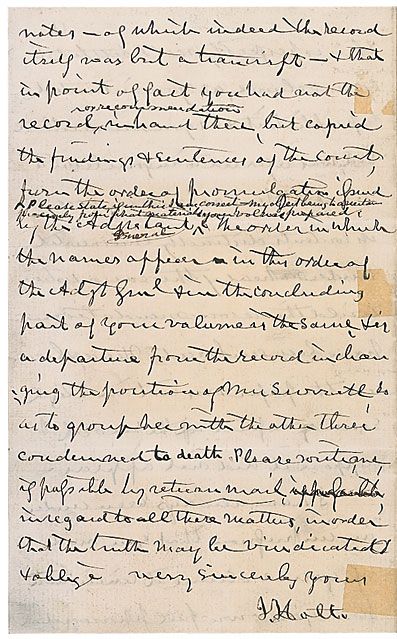 notes — of which indeed the record
itself was but a transcript — & that
in point of fact you had not the
nor recommendation
record, in hand then, but copied
the findings & sentences of the Court,
from the order of promulgation issued
Please state if in this I am correct — my object being to ascertain
precisely from what materials your volume was prepared
by the Adjutant General & The order in which
the names appear in this order of
the Adjt Genl & in the concluding
part of your volume is the same, & is
a departure from the record in chan
ging the position of Mrs Surratt so
as to group her with the other three
condemned to death. Please write me,
if possible by return mail, if possible,
in regard to all these matters, in order
that the truth may be vindicated &
& oblige very sincerely yours
J. Holt.